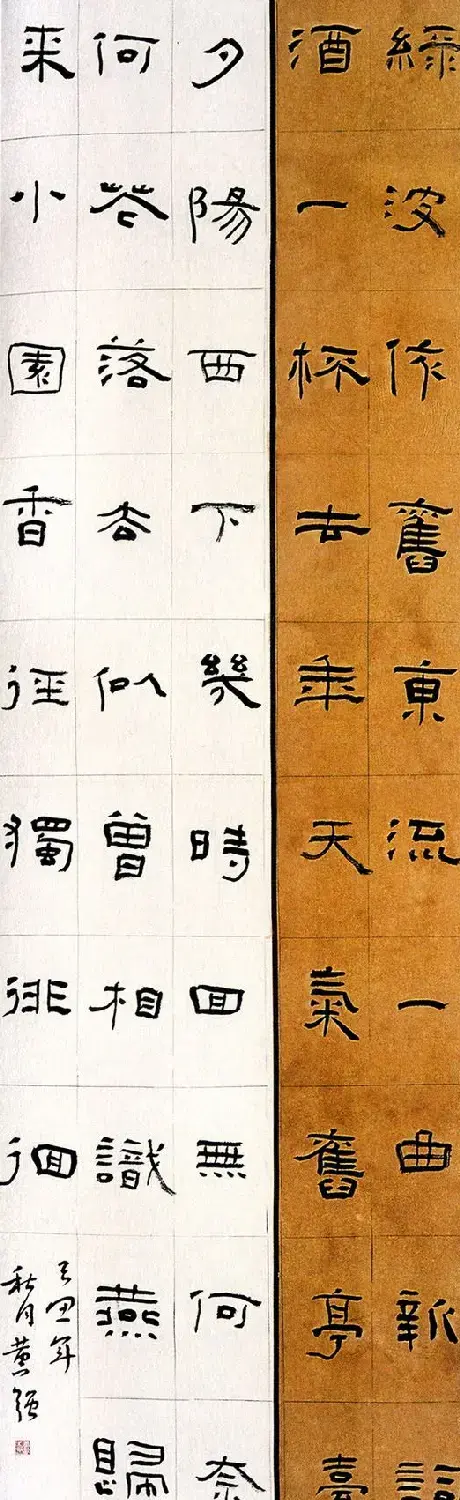 綠波依舊東流一曲新詞
酒一杯去年天氣舊亭臺
夕陽西下幾時回無何奈
何花落去似曾相識燕歸
来小園香徑獨徘徊
丑年
秋月黄强